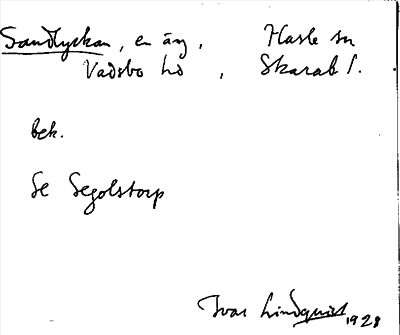 Sandlyckan, en äng, Hasle sn
Vadsbo hd, Skarab l.
bek.
Se Segolstorp
Ivar Lindquist 1928